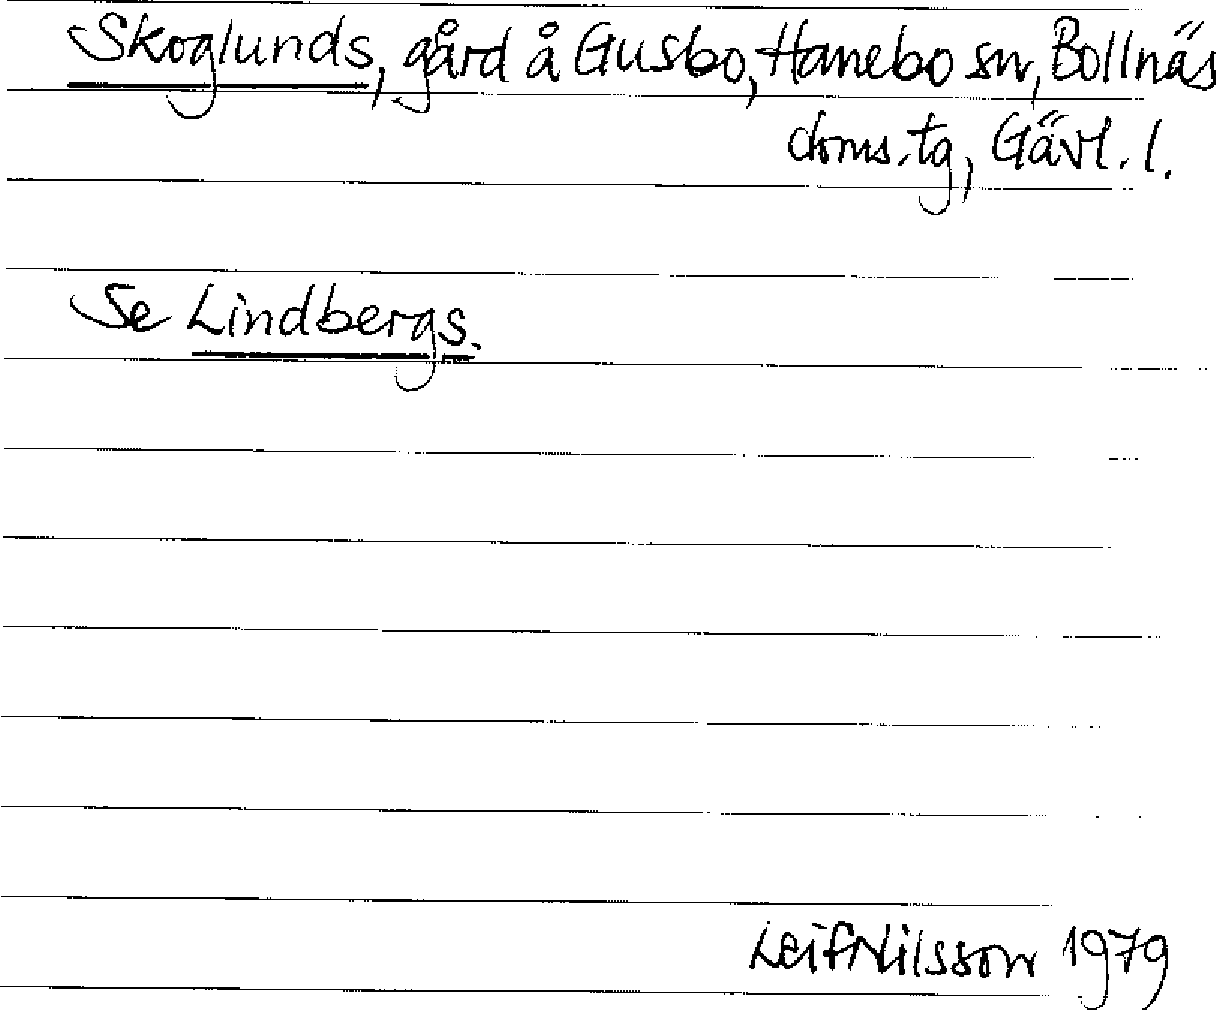 Skoglunds, gård å Gusbo, Hanebo sn, Bollnäs
doms.tg, Gävl. l.
Se Lindbergs.
Leif Nilsson 1979